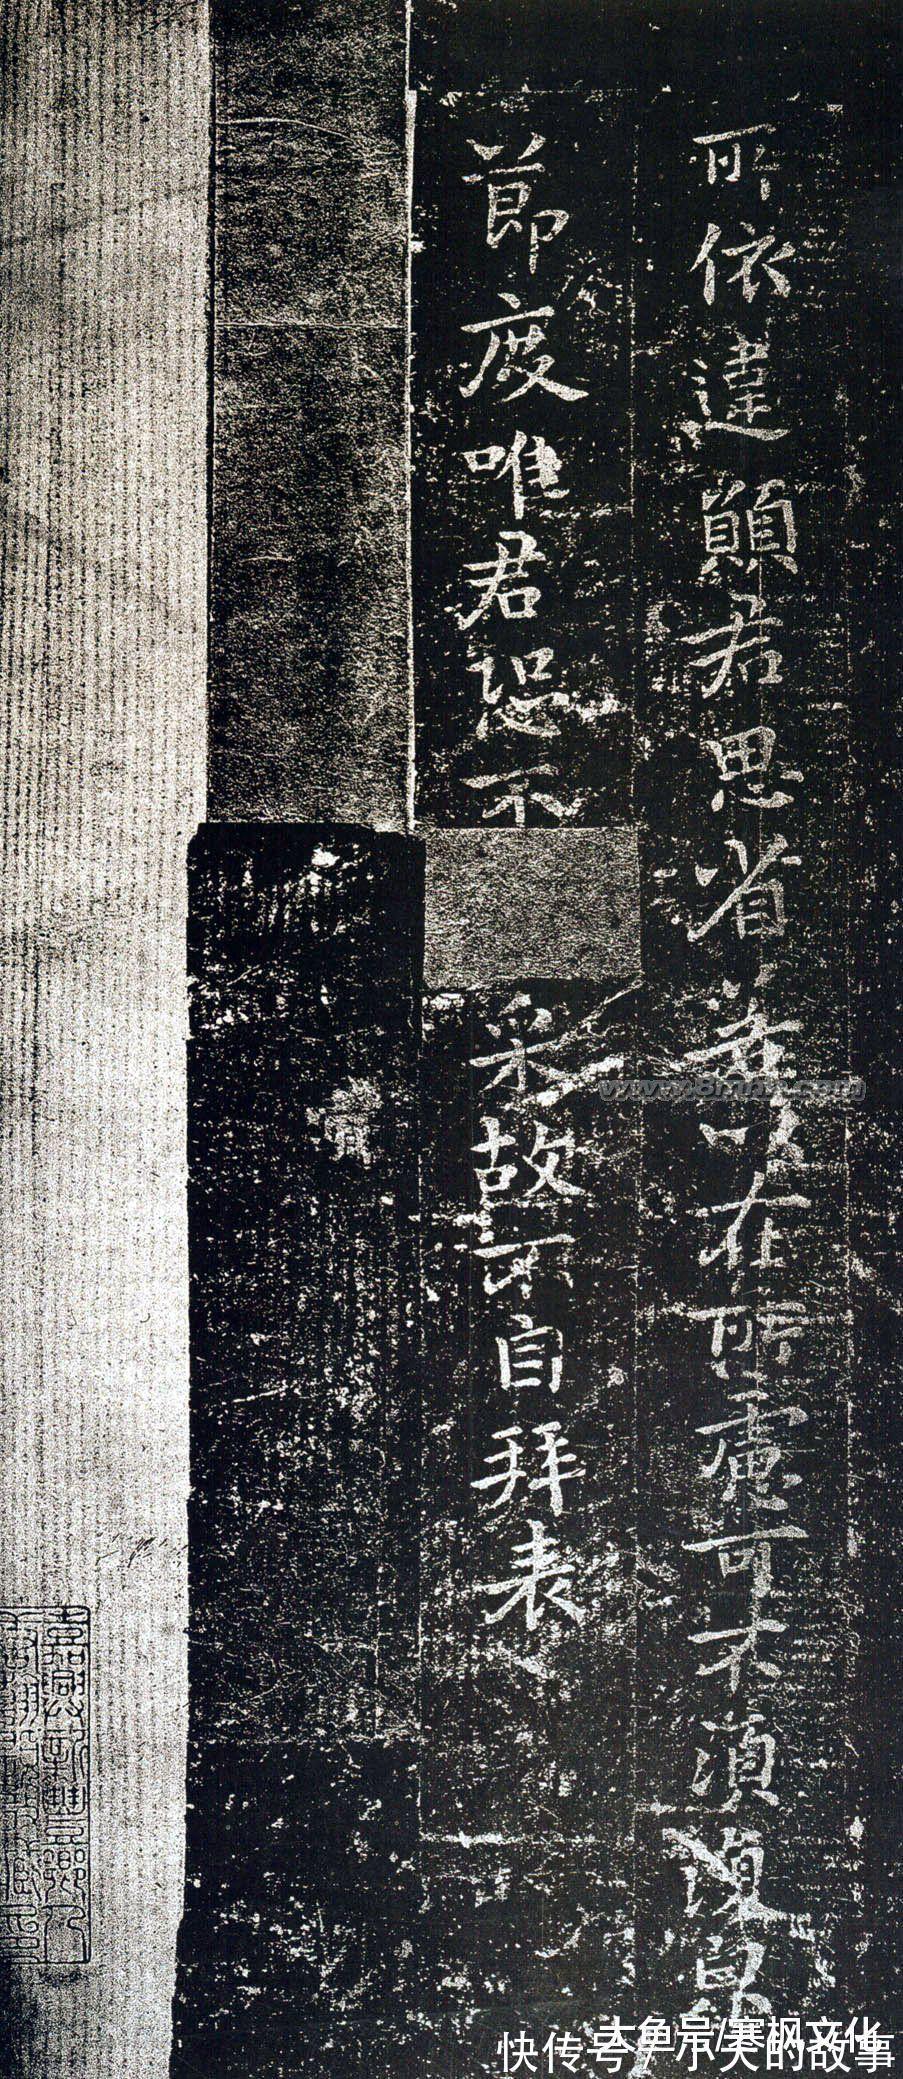 所依違願君思省若以在所慮可不須復白
節度唯君恐不
采故不自拜表
賞
www.8mhh.com
大鱼号/寒枫文化
快传号/小夫的故事